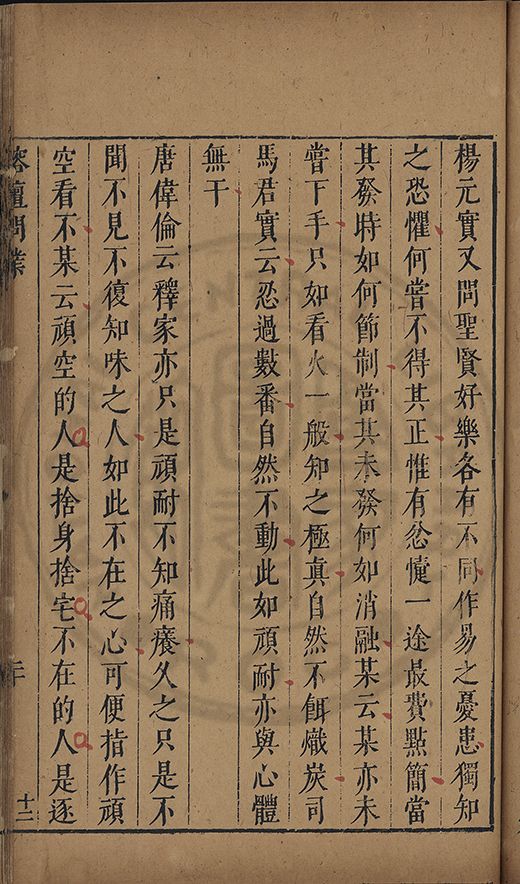 楊元實又問聖賢好樂各有不同作易之憂患獨知
之恐懼何嘗不得其正惟有忿懥一途最費點簡當
其發時如何節制當其未發何如消融某云某亦未
嘗下手只如看火一般知之極真自然不餌熾炭司
馬君實云忍過數番自然不動此如頑耐亦與心體
無干
唐偉倫云釋家亦只是頑耐不知痛癢久之只是不
聞不見不復知味之人如此不在之心可便指作頑
空看不某云頑空的人是捨身捨宅不在的人是逐
榕壇問業
十二